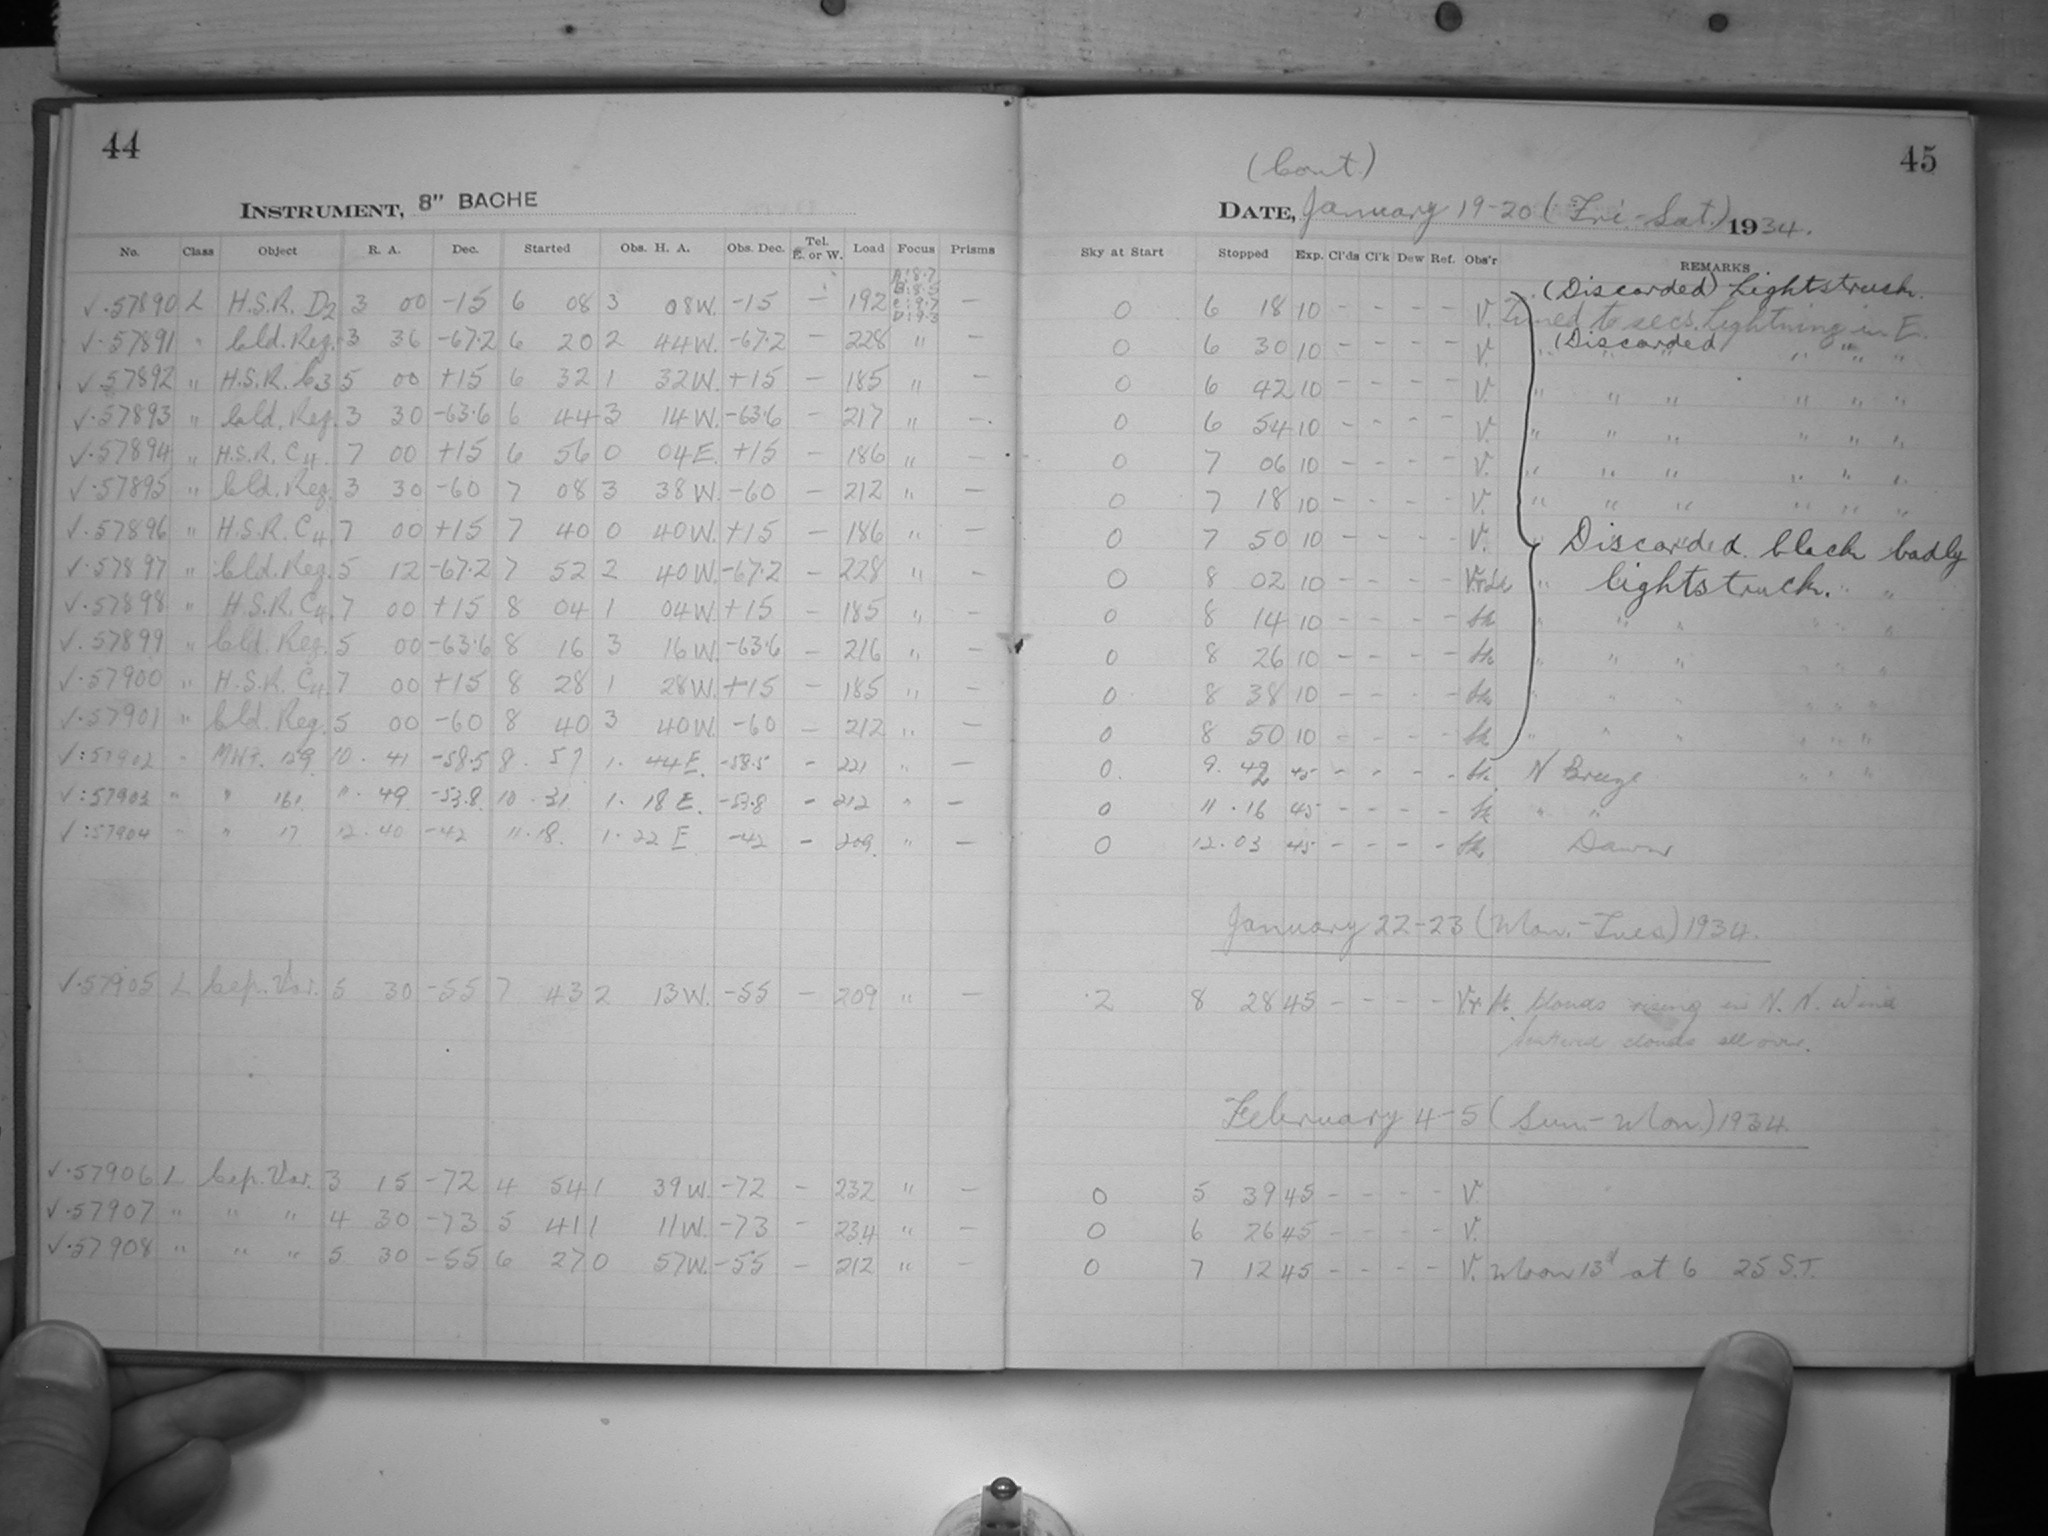 44
INSTRUMENT, 8" BACHE
No. Class Object R. A. Dec. Started Obs. H. A. Obs. Dec. Tel. E. or W. Load Focus Prisms
A:8.7
B:8.5
C:9.7
D:9.3
√.57890 L H.S.R. D2 3 00 -15 6 08 3 08W. -15 - 192 -
√.57891 " Cld. Reg. 3 36 -67.2 6 20 2 44W. -67.2 - 228 " -
√.57892 " H.S.R. C3 5 00 +15 6 32 1 32W. +15 - 185 " -
√.57893 " Cld. Reg. 3 30 -63.6 6 44 3 14W. -63.6 - 217 " -
√.57894 " H.S.R. C4 7 00 +15 6 56 0 04E. +15 - 186 " -
√.57895 " Cld. Reg. 3 30 -60 7 08 3 38W. -60 - 212 " -
√.57896 " H.S.R. C4 7 00 +15 7 40 0 40W. +15 - 186 " -
√.57897 " Cld. Reg. 5 12 -67.2 7 52 2 40W. -67.2 - 228 " -
√.57898 " H.S.R. C4 7 00 +15 8 04 1 04W. +15 - 185 " -
√.57899 " Cld. Reg. 5 00 -63.6 8 16 3 16W. -63.6 - 216 " -
√.57900 " H.S.R. C4 7 00 +15 8 28 1 28W. +15 - 185 " -
√.57901 " Cld. Reg. 5 00 -60 8 40 3 40W. -60 - 212 " -
√:57902 " MWF. 159 10. 41 -58.5 8. 57 1. 44E. -58.5 - 221 " -
√:57903 " " 161 11. 49 -53.8 10. 31 1. 18E. -53.8 - 212 " -
√:57904 " " 17 12. 40 -42 11. 18. 1. 22 E -42 - 209 " -
√.57905 L Cep. Var. 5 30 -55 7 43 2 13W. -55 - 209 " -
√.57906 L Cep. Var. 3 15 -72 4 54 1 39W. -72 - 232 " -
√.57907 " " " 4 30 -73 5 41 1 11W. -73 - 234 " -
√.57908 " " " 5 30 -55 6 27 0 57W. -55 - 212 " -
45
(Cont.)
DATE, January 19-20 (Fri.-Sat.) 1934.
Sky at Start Stopped Exp. Cl'ds Cl'k Dew Ref. Obs'r REMARKS
(Discarded) Lightstruck.
0 6 18 10 - - - - V. timed to secs. Lightning in E.
(Discarded
0 6 30 10 - - - - V. " " " " " "
0 6 42 10 - - - - V. " " " " " "
0 6 54 10 - - - - V. " " " " " "
0 7 06 10 - - - - V. " " " " " "
0 7 18 10 - - - - V. " " " " " "
0 7 50 10 - - - - V. " Discarded. black badly
0 8 02 10 - - - - " lightstruck. " "
0 8 14 10 - - - - " " " " " "
0 8 26 10 - - - - " " " " " "
0 8 38 10 - - - - " " " " " "
0 8 50 10 - - - - " " " " " "
0. 9. 42 45 - - - - N Breeze " " "
0 11. 16 45 - - - - " "
0 12. 03 45 - - - - Dawn
January 22-23 (Mon.-Tues.) 1934.
2 8 28 45 - - - - clouds rising in N. N. Wind
Scattered clouds all over.
February 4-5 (Sun.-Mon.) 1934.
0 5 39 45 - - - - V.
0 6 26 45 - - - - V.
0 7 12 45 - - - - V. Moon 13d at 6 25 S.T.